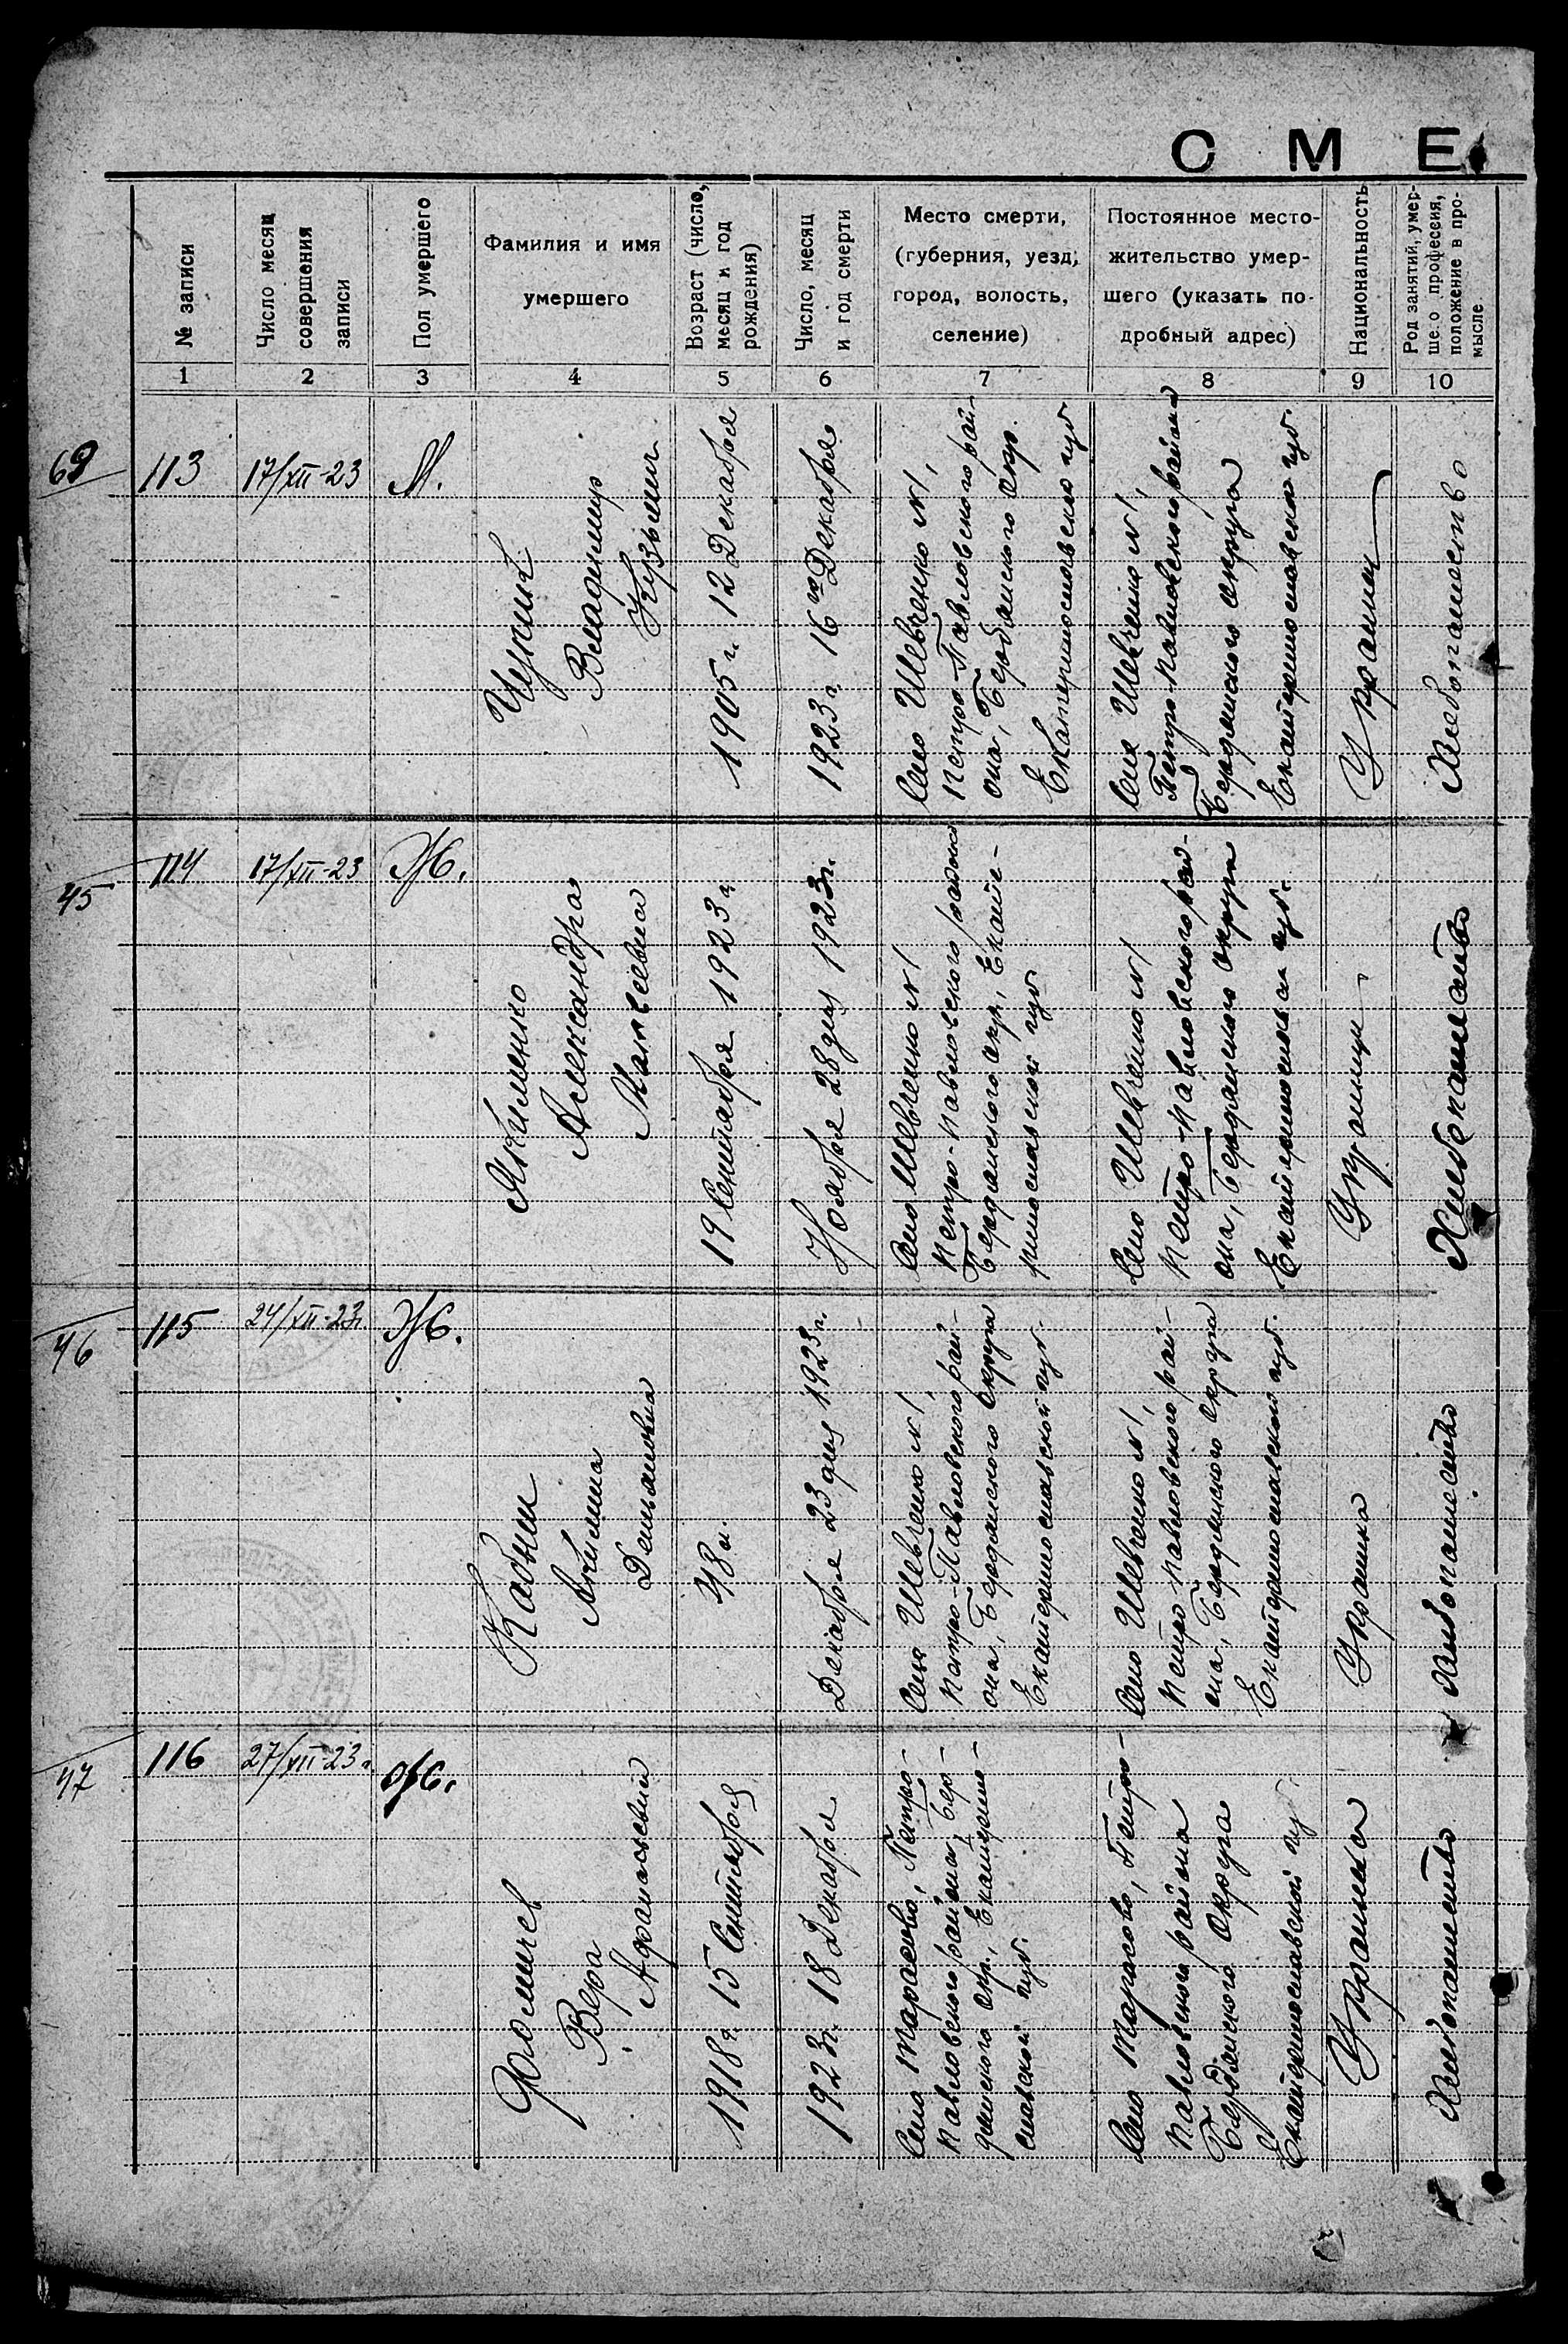 СМЕ
№ записи
Число месяц
совершения
записи
Пол умершего
Фамилия и имя
умершего
Возраст (число,
месяц и год
рождения)
Число, месяц
и год смерти
Место смерти,
(губерния, уезд,
город, волость,
селение)
Постоянное место-
жительство умер-
шего (указать по-
дробный адрес)
Национальность
Род занятий, умер-
шего профессия,
положение в про-
мысле
1 2 3 4 5 6 7 8 9 10
69
113
17/XII-23
М.
Владимир
Кузьмич
1905 г. 12 Декабря
1923 г. 16го Декабря
Село Шевченко №1,
Петро-Павловского рай-
она, Бердянского Окр.
Екатеринославской губ.
Село Шевченко №1,
Петро-Павловского района
Бердянского округа
Екатеринославской губ.
Украинец
Хлебопашество
45
114
17/XII-23
Ж.
Якименко
Александра
Матвеевна
19 Сентября 1923 г.
Ноября 28 дня 1923 г.
Село Шевченко №1
Петро-Павловского района
Бердянского Окр., Екате-
ринославской губ
Село Шевченко №1
Петро-Павловского рай-
она, Бердянского Округа
Екатеринославской губ.
Украинец
Хлебопашество
46
115
24/XII-23 г.
Ж.
Акилина
Демьяновна
48 л.
Декабря 23 дня 1923 г.
Село Шевченко №1,
Петро-Павловского рай-
она, Бердянского Округа
Екатеринославской губ.
Село Шевченко №1,
Петро Павловского рай-
она, Бердянского Округа
Екатеринославской губ.
Украинка
Хлебопашество
47
116
27/XII-23 г.
Ж.
Фомичев
Вера
Афанасьевна
1918 г. 15 Сентября
1923 г. 18 Декабря
Село Тарасово, Петро-
Павловского района, Бер-
дянского Окр., Екатерино-
славской губ.
Село Тарасово, Петро-
Павловского района
Бердянского Округа
Екатеринославской губ.
Украинка
Хлебопашество